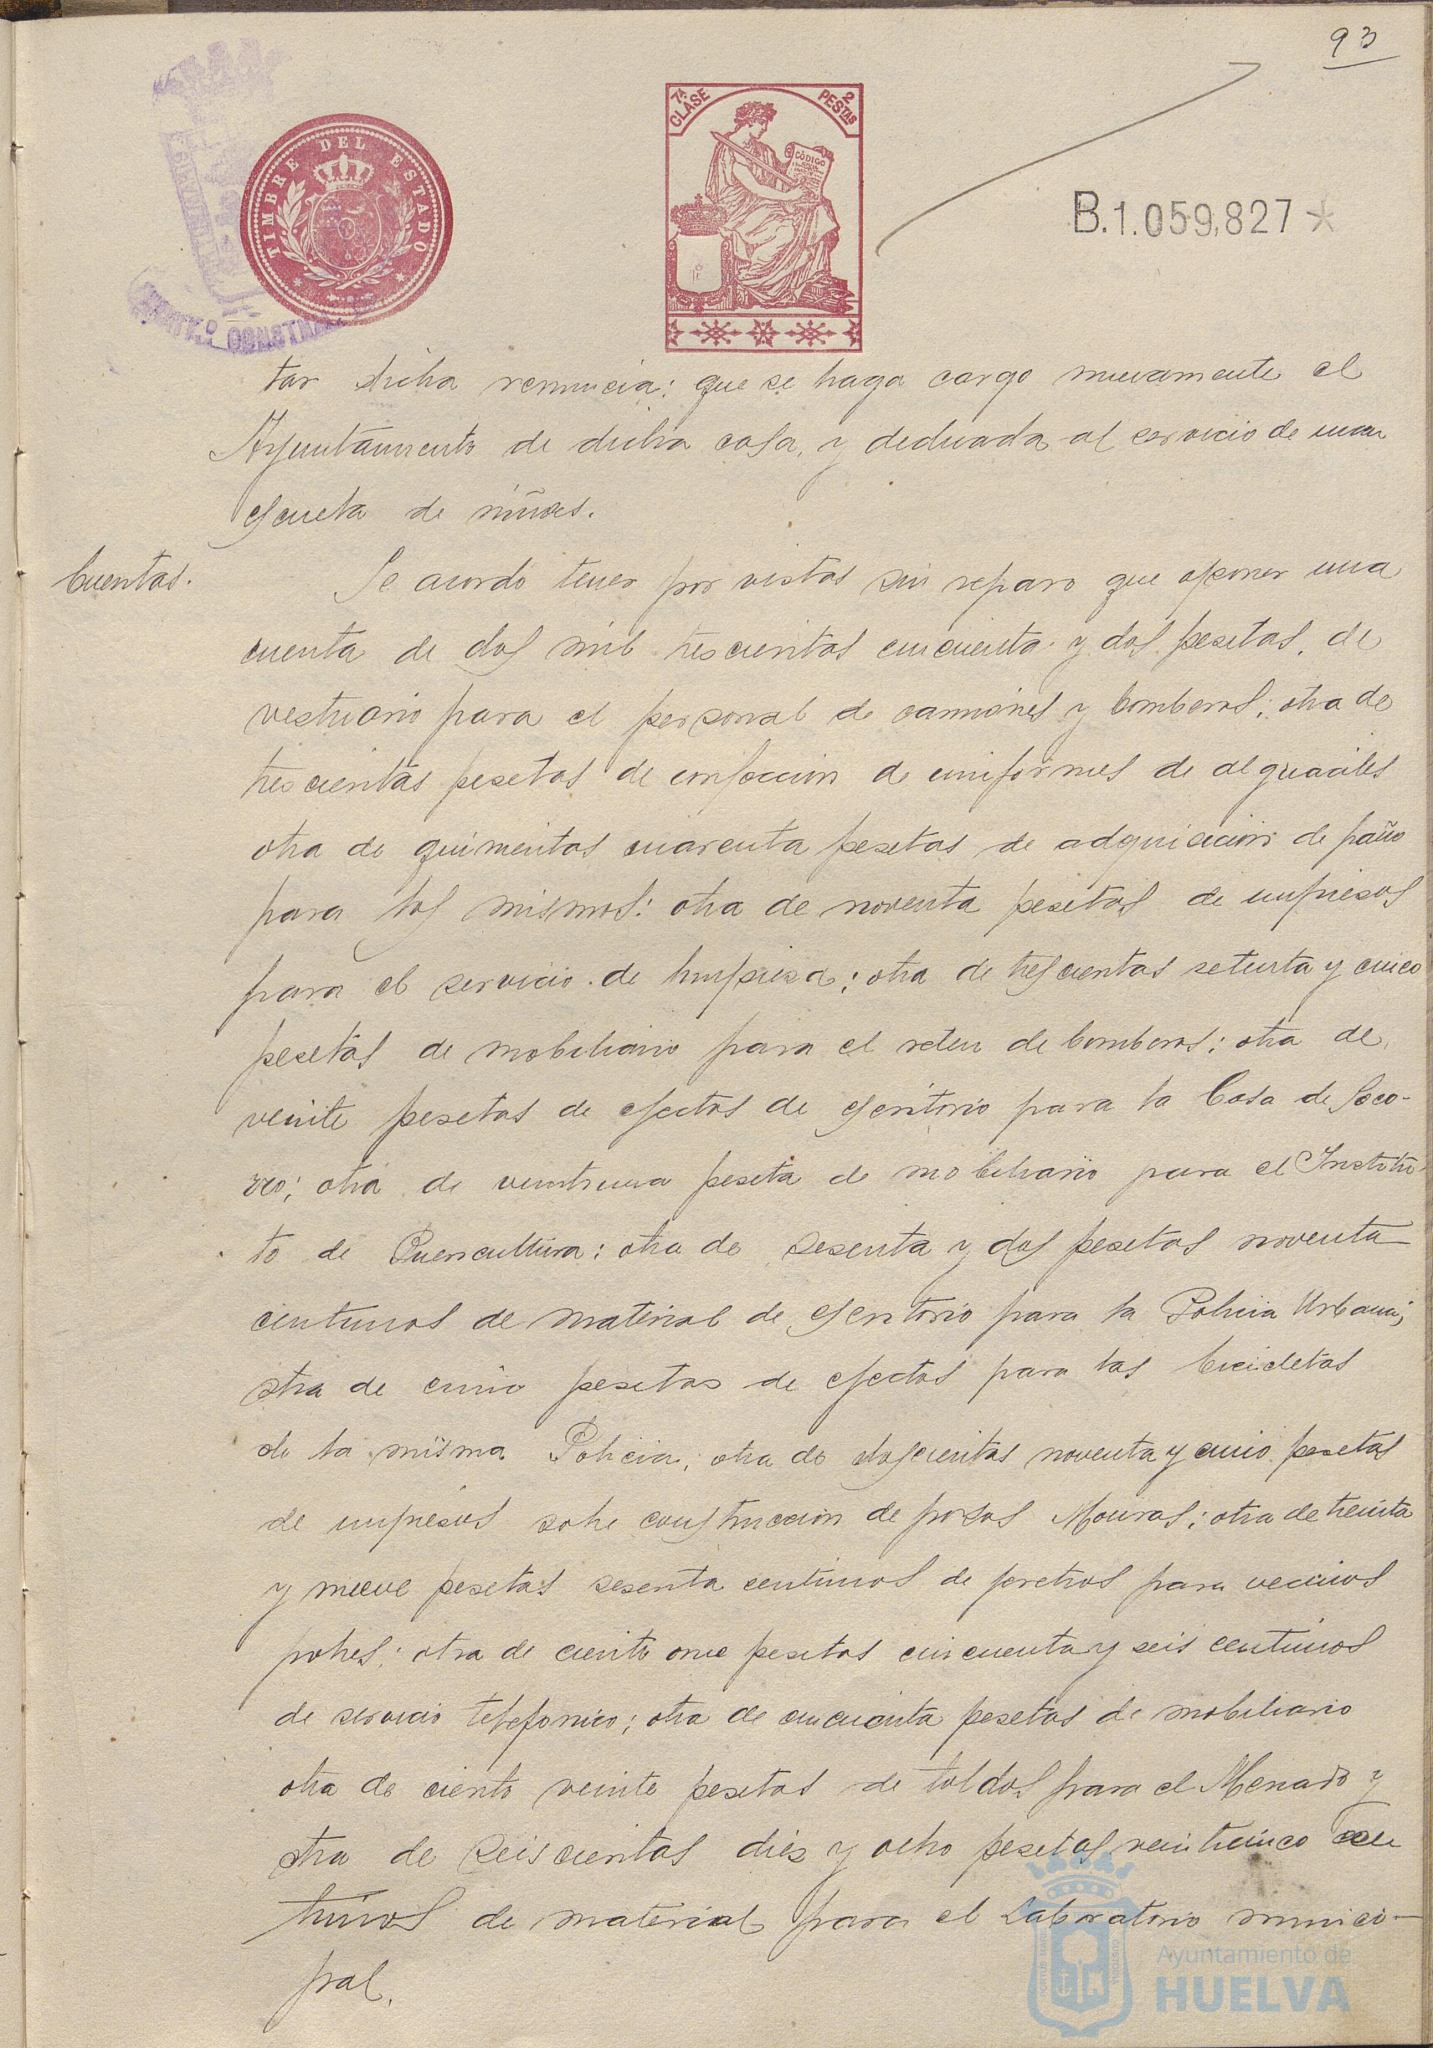 93
TIMBRE DEL ESTADO
7ª CLASE
2 PESTAS
CÓDIGO
B.1.059,827*
CONST
tar dicha renuncia: que se haga cargo nuevamente el
Ayuntamiento de dicha casa, y dedicada al servicio de una
escuela de niñas.
Cuentas.
Se acordó tener por vistas sin reparo que oponer una
cuenta de dos mil trescientas cincuenta y dos pesetas, de
vestuario para el personal de camiones y bomberos; otra de
trescientas pesetas de confección de uniformes de alguaciles
otra de quinientas cuarenta pesetas de adquisición de paño
para los mismos: otra de noventa pesetas de impresos
para el servicio de limpieza; otra de trescientas setenta y cinco
pesetas de mobiliario para el reten de bomberos; otra de
veinte pesetas de efectos de escritorio para la Casa de Soco-
rro; otra de veintiuna peseta de mobiliario para el Institu
to de Puericultura; otra de sesenta y dos pesetas noventa
centimos de material de escritorio para la Policia Urbana;
otra de cinco pesetas de efectos para las bicicletas
de la misma Policia, otra de doscientas noventa y cinco pesetas
de impresos sobre construccion de pozos Mouras; otra de treinta
y nueve pesetas sesenta centimos de feretros para vecinos
pobres; otra de ciento once pesetas cincuenta y seis centimos
de servicio telefonico; otra de cincuenta pesetas de mobiliario
otra de ciento veinte pesetas de toldos para el Mercado y
otra de seiscientas diez y ocho pesetas veinticinco cen
timos de material para el Laboratorio munici-
pal.
Ayuntamiento de
HUELVA